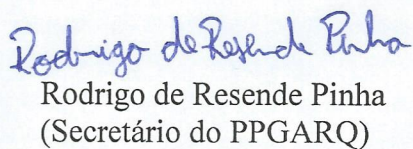 Rodrigo de Resende Pinha
Rodrigo de Resende Pinha
(Secretário do PPGARQ)